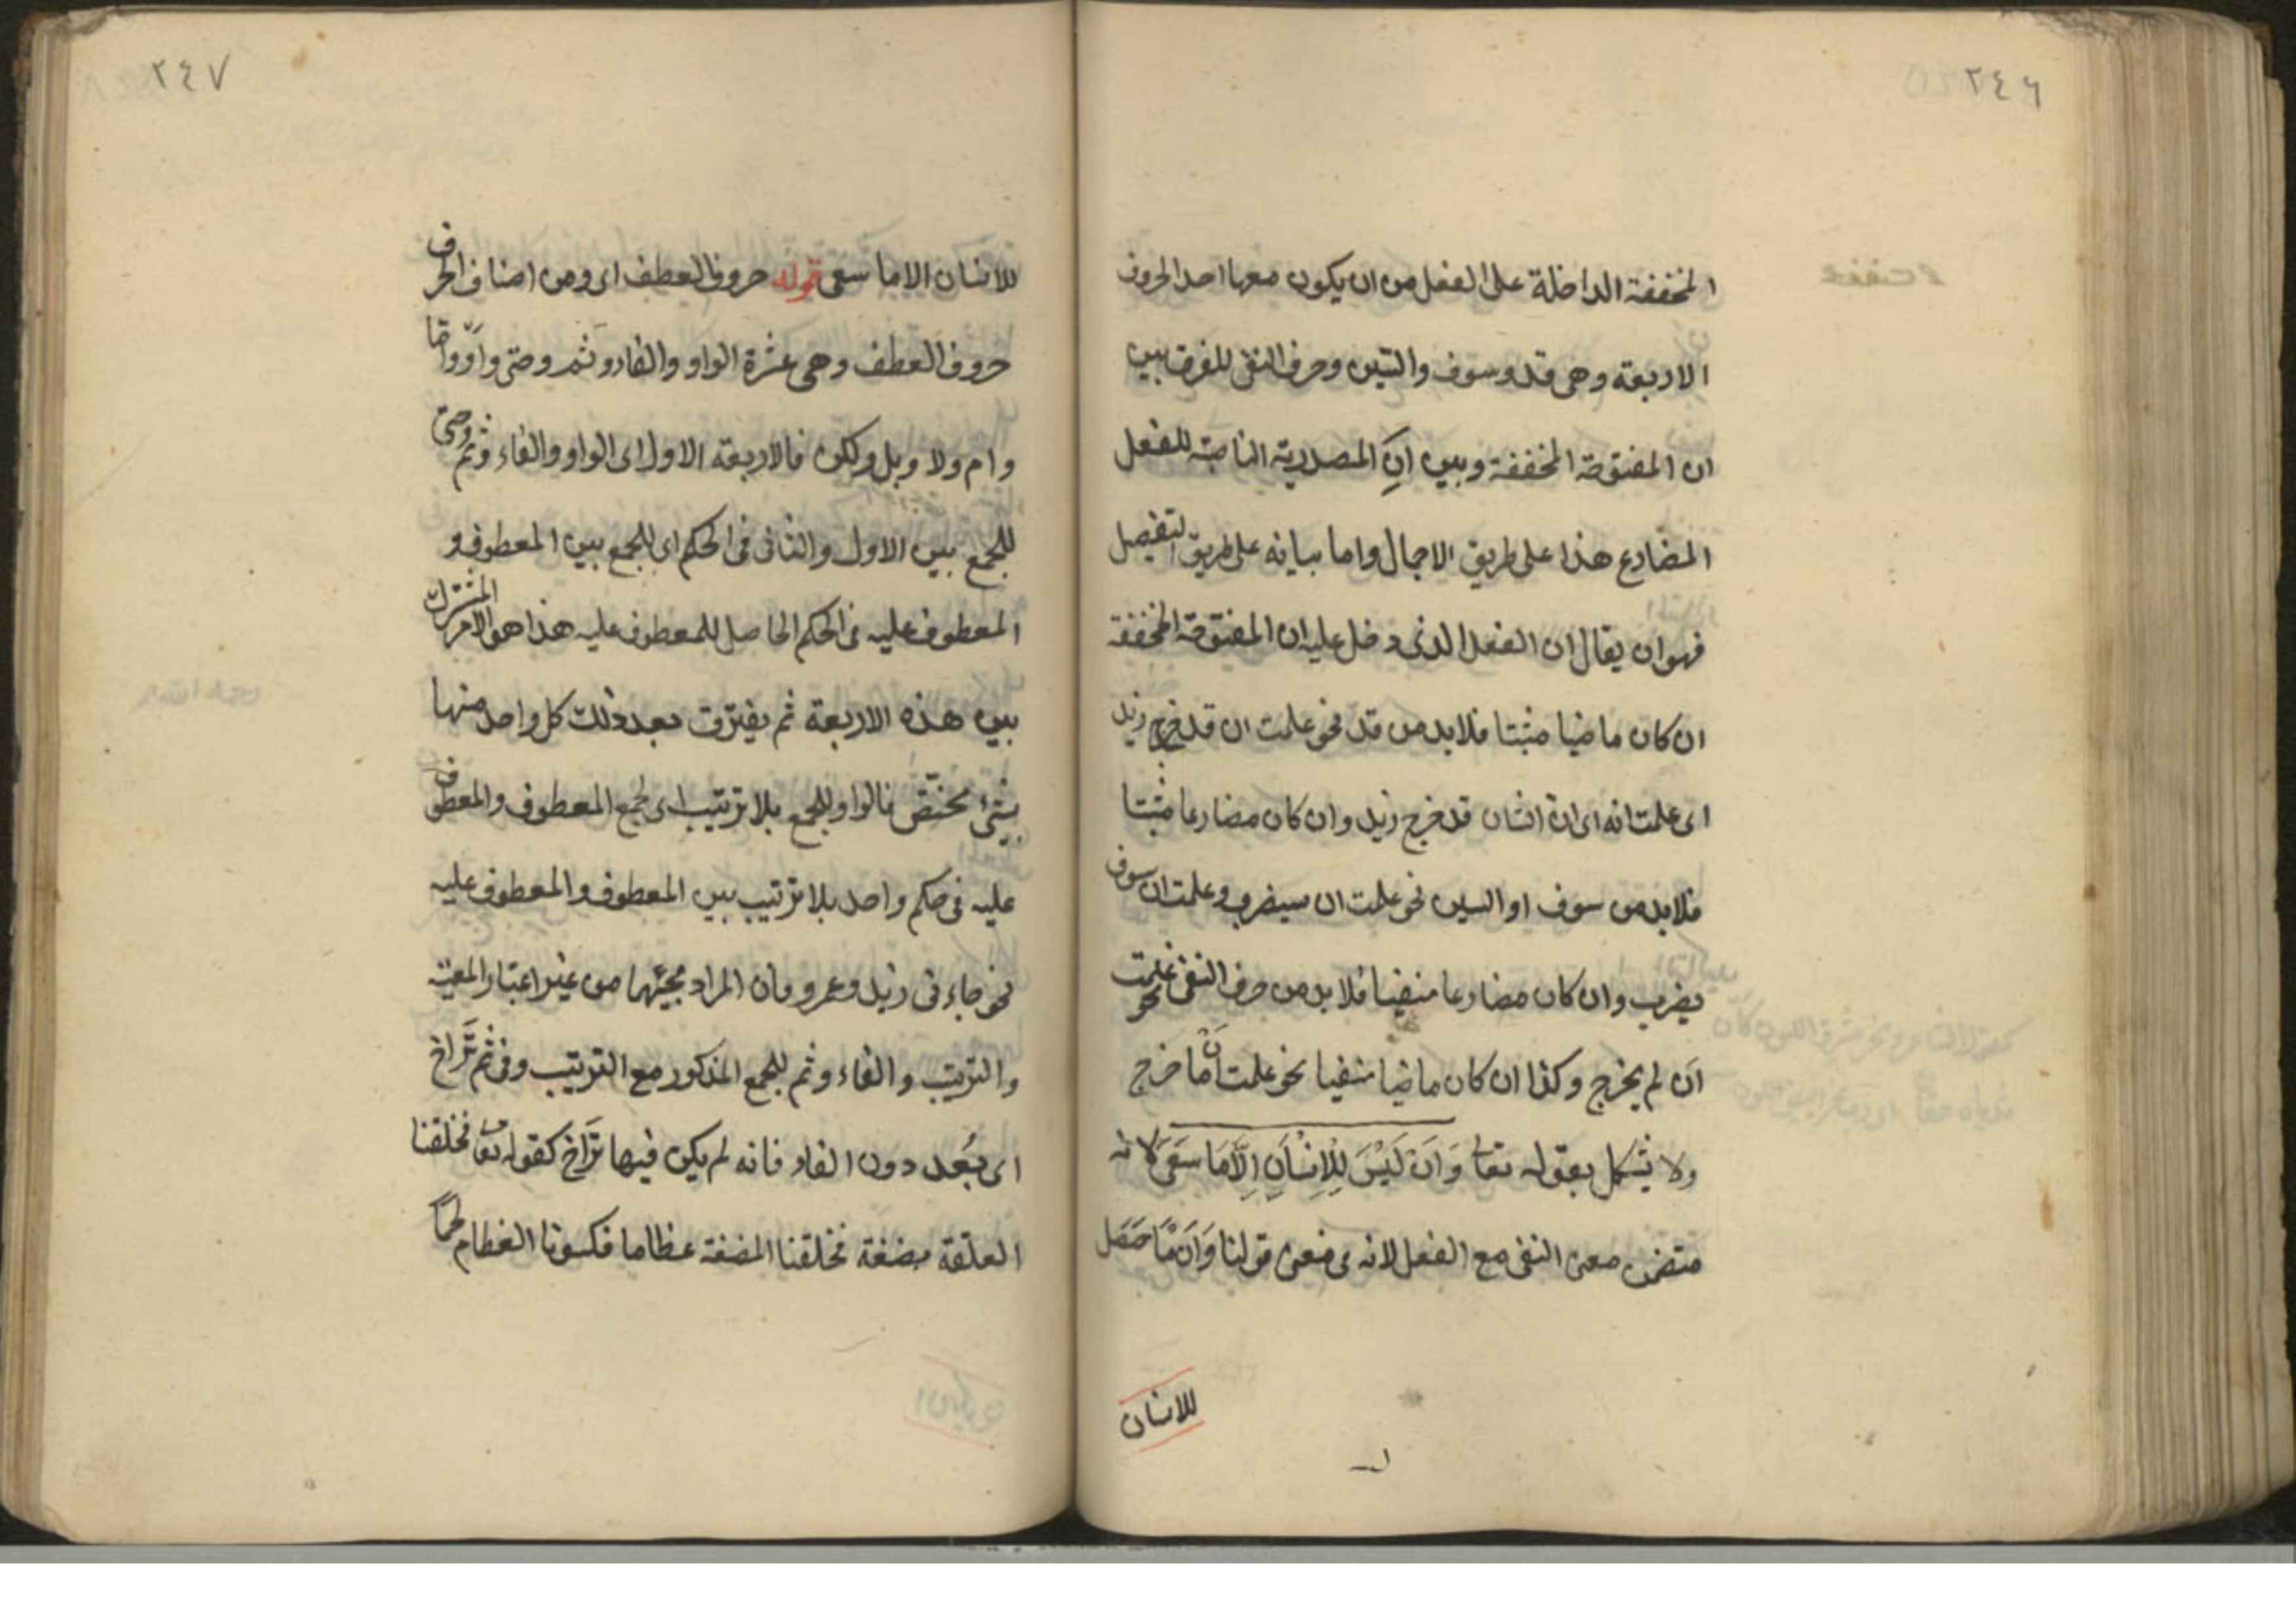 ٢٤٦
المخففة الداخلة على الفعل من ان يكون معها احد الحروف
الاربعة وهى قد وسوف والسّين وحرف النفى للفرق بين
ان المفتوحة المخففة وبين ان المصدرية الناصبة للفعل
المضارع هذا على طريق الاجمال واما بيانه على طريق التفصيل
فهو ان يقال ان الفعل الذى دخل عليه ان المفتوحة المخففة
ان كان ماضيا مثبتا فلا بد من قد نحو علمت ان قد خرج زيد
اى علمت انه اى ان الشان قد خرج زيد وان كان مضارعا مثبتا
فلا بد من سوف او السين نحو علمت ان سيضرب وعلمت ان سوف
يضرب وان كان مضارعا منفيا فلا بد من حرف النفى نحو علمت
ان لم يخرج وكذا ان كان ماضيا منفيا نحو علمت ان ما خرج
ولا يشكل بقوله تعا وَاَنْ لَيْسَ لِلْاِنْسَانِ اِلَّا مَا سَعَى لانه
متضمن معنى النفى مع الفعل لانه فى معنى قولنا وَاَنْ مَا حَصَلَ
للانسان
٢٤٧
للانسان الا ما سعى قوله حروف العطف اى ومن اصناف الحرف
حروف العطف وهى عشرة الواو والفاء وثم وحتى واو واما
وام ولا وبل ولكن فالاربعة الاول اى الواو والفاء وثم وحتى
للجمع بين الاول والثانى فى الحكم اى للجمع بين المعطوف و
المعطوف عليه فى الحكم الحاصل للمعطوف عليه هذا هو الامر المشترك
بين هذه الاربعة ثم يفترق بعد ذلك كل واحد منها
بشئ مختص فالواو للجمع بلا ترتيب اى لجمع المعطوف والمعطوف
عليه فى حكم واحد بلا ترتيب بين المعطوف والمعطوف عليه
نحو جاءنى زيد وعمرو فان المراد مجيئهما من غير اعتبار المعية
والترتيب والفاء وثم للجمع المذكور مع الترتيب وفى ثم تَرَاخ
اى بُعد دون الفاء فانه لم يكن فيها تَرَاخ كقوله تعا فخلقنا
العلقة مضغة فخلقنا المضغة عظاما فكسونا العظام لحمًا